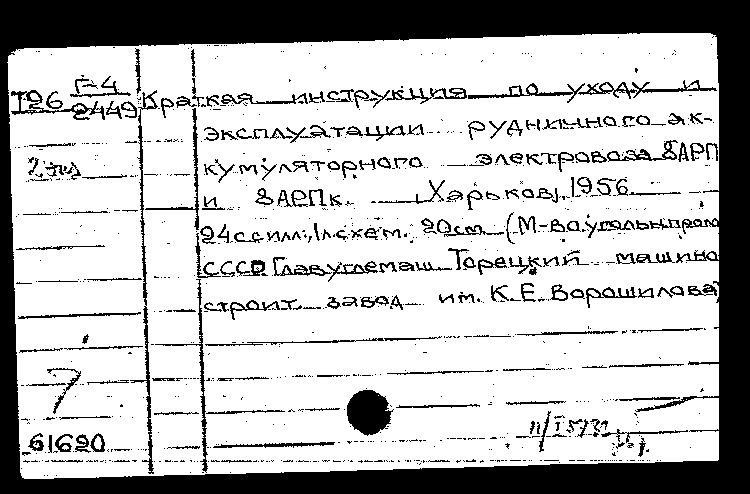 Г-4
Т96 2449 Краткая инструкция по уходу и
эксплуатации рудничного ак-
2 экз кумуляторного электровоза 8АРП
и 8АРПк. [Харьков], 1956.
24с с илл., 1л.схем. 20см (М-во угольн.пром
СССР Главуглемаш Торецкий машино
строит. завод им. К.Е. Ворошилова)
7
61690
п/I 5731